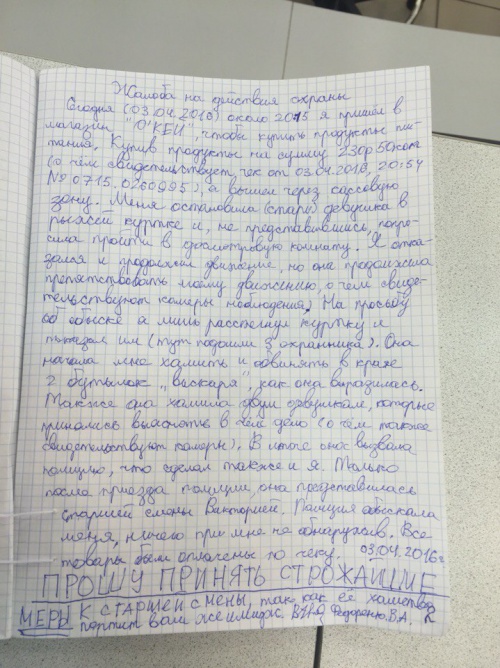 Жалоба на действия охраны
Сегодня (03.04.2016) около 2015 я пришел в
магазин "О'КЕЙ", чтобы купить продукты пи-
тания. Купив продукты на сумму 230р 50коп
(о чем свидетельствует чек от 03.04.2016, 20:54
№0715.0260995), я вышел через кассовую
зону. Меня остановила (старш) девушка в
рыжей куртке и, не представившись, попро-
сила пройти в досмотровую комнату. Я отка-
зался и продолжил движение, но она продолжила
препятствовать моему движению, о чем свиде-
тельствуют камеры наблюдения. На просьбу
об обыске я лишь расстегнул куртку и
показал им (тут подошли 3 охранника). Она
начала мне хамить и обвинять в краже
2 бутылок "вискаря", как она выразилась.
Также она хамила двум девушкам, которые
принялись выяснять в чем дело (о чем также
свидетельствуют камеры). В итоге она вызвала
полицию, что сделал также и я. Только
после приезда полиции, она представилась
старшей смены Викторией. Полиция обыскала
меня, ничего при мне не обнаружив. Все
товары были оплачены по чеку. 03.04.2016г
ПРОШУ ПРИНЯТЬ СТРОЖАЙШИЕ
МЕРЫ К СТАРШЕЙ СМЕНЫ, так как её хамство
портит вам же имидж Федоренко В.А.